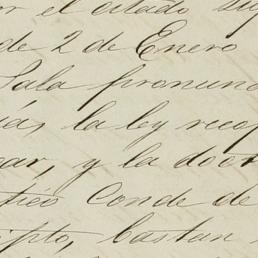 or el citado
de 2 de Enero
Sala pronun
la ley reco
ar, y la doc
Conde de
bastan